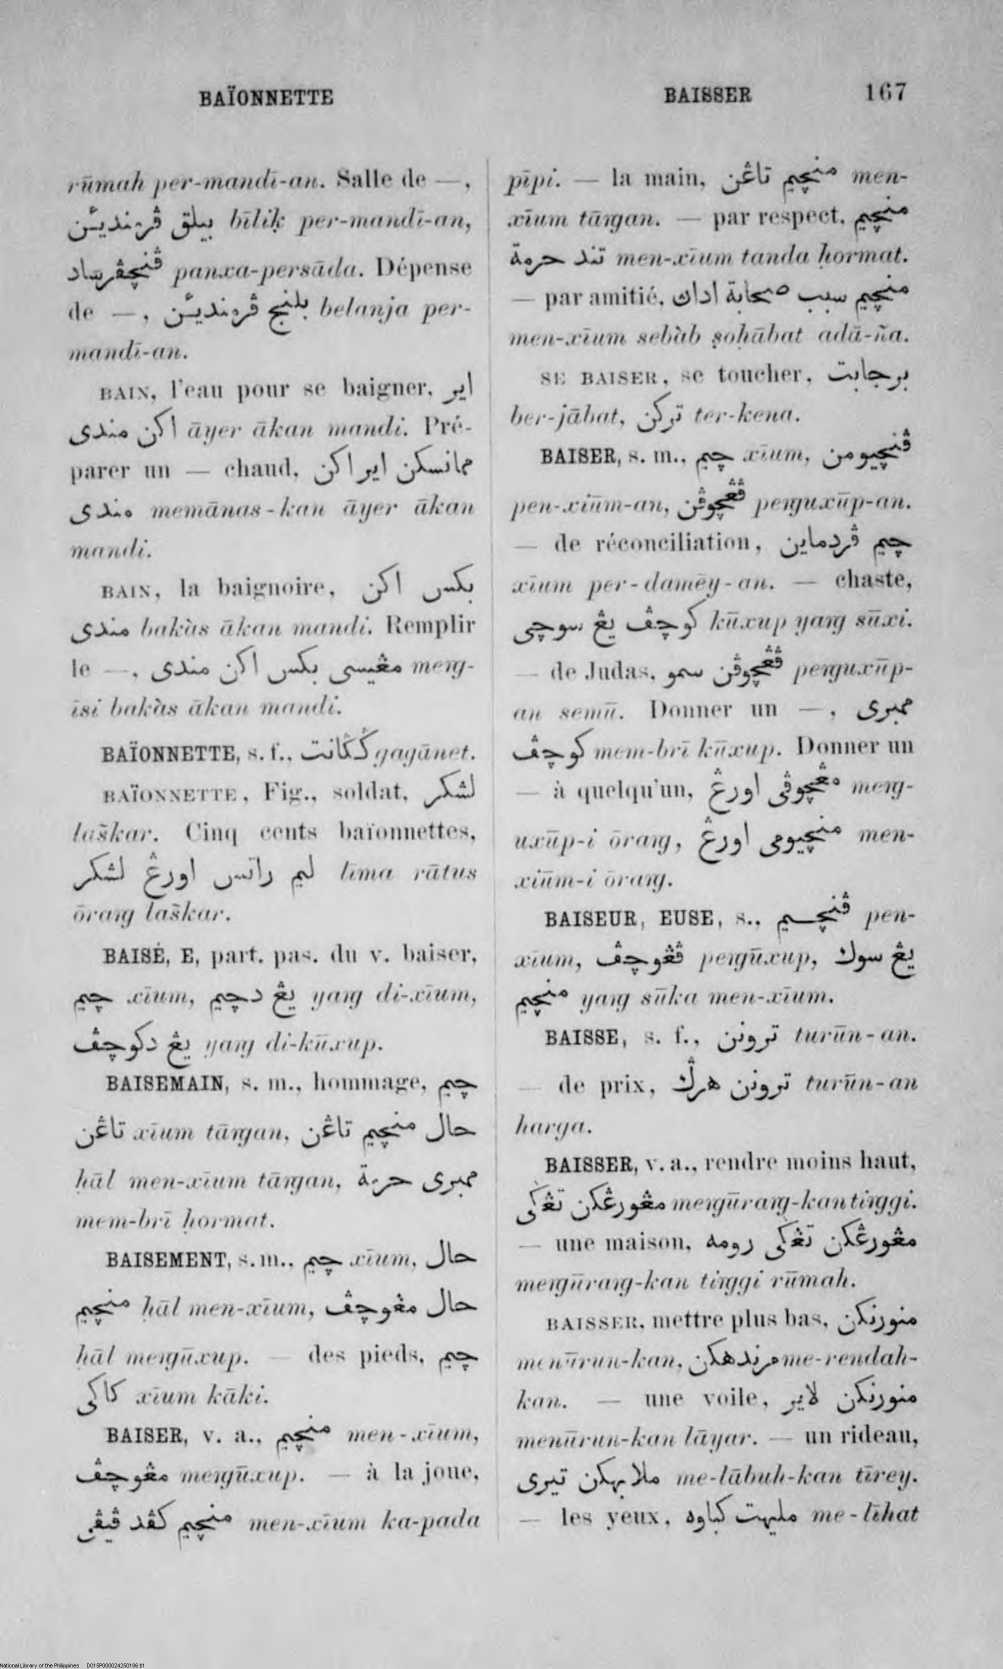 BAÏONNETTE
BAISSER 167
rūmah per-mandī-an. Salle de —,
بيلق ڤرمنديئن bīliḳ per-mandī-an,
ڤنچڤرساد panxa-persāda. Dépense
de —, بلنج ڤرمنديئن belanja per-
mandī-an.
BAIN, l'eau pour se baigner, اير
اكن مندى āyer ākan mandi. Pré-
parer un — chaud, ممانسكن اير اكن
مندى memānas-kan āyer ākan
mandi.
BAIN, la baignoire, بكس اكن
مندى bakàs ākan mandi. Remplir
le —, مڠيسى بكس اكن مندى meng-
īsi bakàs ākan mandi.
BAÏONNETTE, s. f., ڬڬانت gagānet.
BAÏONNETTE, Fig., soldat, لشكر
laškar. Cinq cents baïonnettes,
ليم راتس اورڠ لشكر līma rātus
ōrang laškar.
BAISÉ, E, part. pas. du v. baiser,
چيم xīum, يڠ دچيم yang di-xīum,
يڠ دكوچڤ yang di-kūxup.
BAISEMAIN, s. m., hommage, چيم
تاڠن xīum tāngan, حال منچيم تاڠن
ḥāl men-xīum tāngan, ممبرى حرمة
mem-brī ḥormat.
BAISEMENT, s. m., چيم xīum, حال
منچيم ḥāl men-xīum, حال مڠوچڤ
ḥāl mengūxup. — des pieds, چيم
كاكى xīum kāki.
BAISER, v. a., منچيم men-xīum,
مڠوچڤ mengūxup. — à la joue,
منچيم كڤد ڤيڤى men-xīum ka-pada
pīpi. — la main, منچيم تاڠن men-
xīum tāngan. — par respect, منچيم
تند حرمة men-xīum tanda ḥormat.
— par amitié, منچيم سبب صحابة اداڽ
men-xīum sebàb ṣoḥābat adā-ña.
SE BAISER, se toucher, برجابت
ber-jābat, تركن ter-kena.
BAISER, s. m., چيم xīum, ڤنچيومن
pen-xiūm-an, ڤڠچوڤن penguxūp-an.
— de réconciliation, چيم ڤردماين
xīum per-damēy-an. — chaste,
كوچڤ يڠ سوچى kūxup yang sūxi.
— de Judas, ڤڠچوڤن سمو penguxūp-
an semū. Donner un —, ممبرى
كوچڤ mem-brī kūxup. Donner un
— à quelqu'un, مڠچوڤى اورڠ meng-
uxūp-i ōrang, منچيومى اورڠ men-
xiūm-i ōrang.
BAISEUR, EUSE, s., ڤنچيم pen-
xīum, ڤڠوچڤ pengūxup, يڠ سوك
منچيم yang sūka men-xīum.
BAISSE, s. f., ترونن turūn-an.
— de prix, ترونن هرڬ turūn-an
harga.
BAISSER, v. a., rendre moins haut,
مڠورڠكن تڠڬى mengūrang-kan tinggi.
— une maison, مڠورڠكن تڠڬى رومه
mengūrang-kan tinggi rūmah.
BAISSER, mettre plus bas, منورنكن
menūrun-kan, مرندهكن me-rendah-
kan. — une voile, منورنكن لاير
menūrun-kan lāyar. — un rideau,
ملابهكن تيرى me-lābuh-kan tīrey.
— les yeux, مليهت كباوه me-līhat
National Library of the Philippines